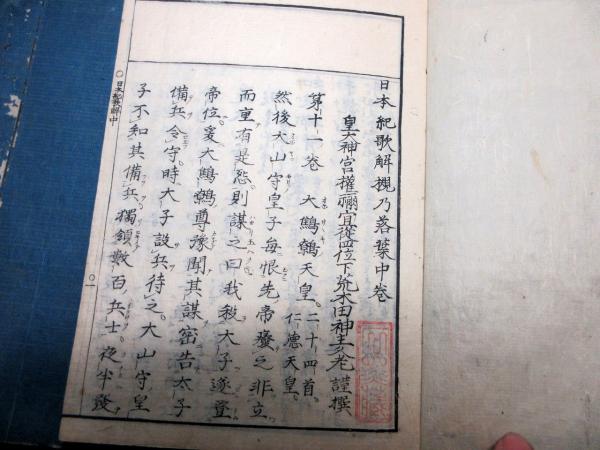 日本紀歌解槻乃落葉中巻
皇大神宮權禰宜從四位下荒木田神主久老謹撰
第十一巻　大鷦鷯天皇。二十四首。仁德天皇。
然後大山守皇子每恨先帝癈之非立
而重有是怨。則謀之曰我殺大子遂登
帝位。爰大鷦鷯尊豫聞其謀密告太子
備兵令守。時大子設兵待之。大山守皇
子不知其備兵獨領數百兵士。夜半發